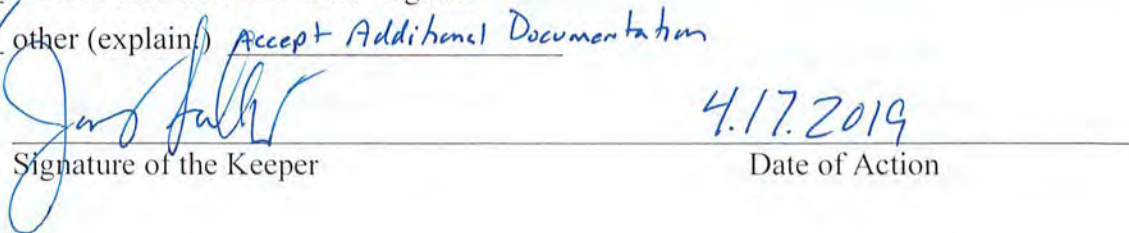 other (explain:) Accept Additional Documentation
4.17.2019
Signature of the Keeper Date of Action